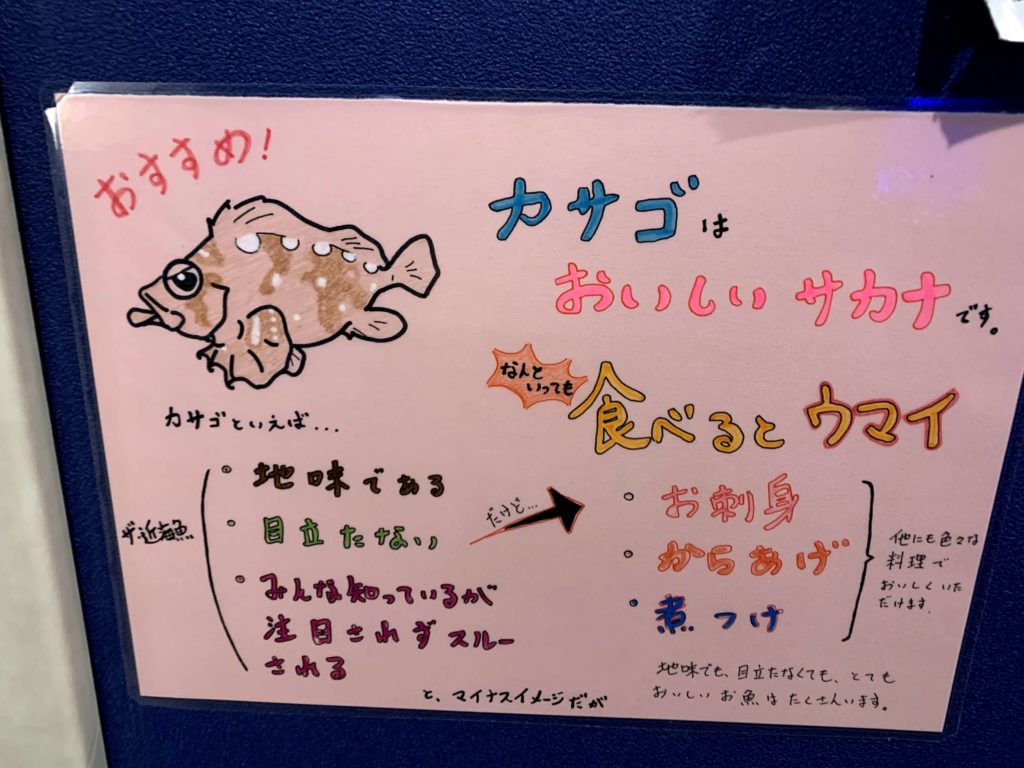 おすすめ!
カサゴは
おいしいサカナです。
なんと
いっても
食べるとウマイ
カサゴといえば...
ザ・近海魚
・地味である
・目立たない
・みんな知っているが
注目されずスルー
される
と、マイナスイメージだが
だけど...
・お刺身
・からあげ
・煮つけ
他にも色々な
料理で
おいしくいた
だけます.
地味でも、目立たなくても、とても
おいしいお魚はたくさんいます。